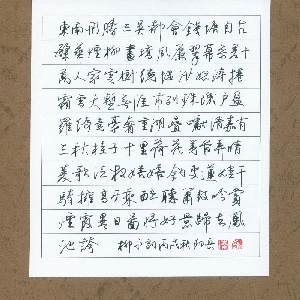 東南形勝三吳都會錢塘自古
繁華煙柳畫橋風簾翠幕參差十
萬人家雲樹繞堤沙怒濤捲
霜雪天塹無涯市列珠璣戶盈
羅綺競豪奢重湖疊巘清嘉有
三秋桂子十里荷花羌管弄晴
菱歌泛夜嬉嬉釣叟蓮娃千
騎擁高牙乘醉聽簫鼓吟賞
煙霞異日圖將好景歸去鳳
池誇 柳永詞丙